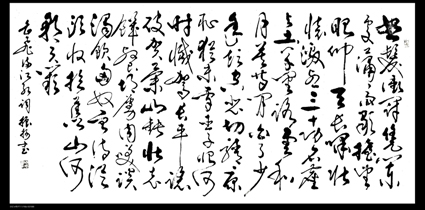 怒髮衝冠憑闌
處瀟瀟雨歇抬望
眼仰天長嘯壯
懷激烈三十功名塵
與土八千里路雲和
月莫等閒白了少
年頭空悲切靖康
恥猶未雪臣子恨何
時滅駕長車踏
破賀蘭山缺壯志
饑餐胡虜肉笑談
渴飲匈奴血待從
頭收拾舊山河
朝天闕
岳飛滿江紅詞 書